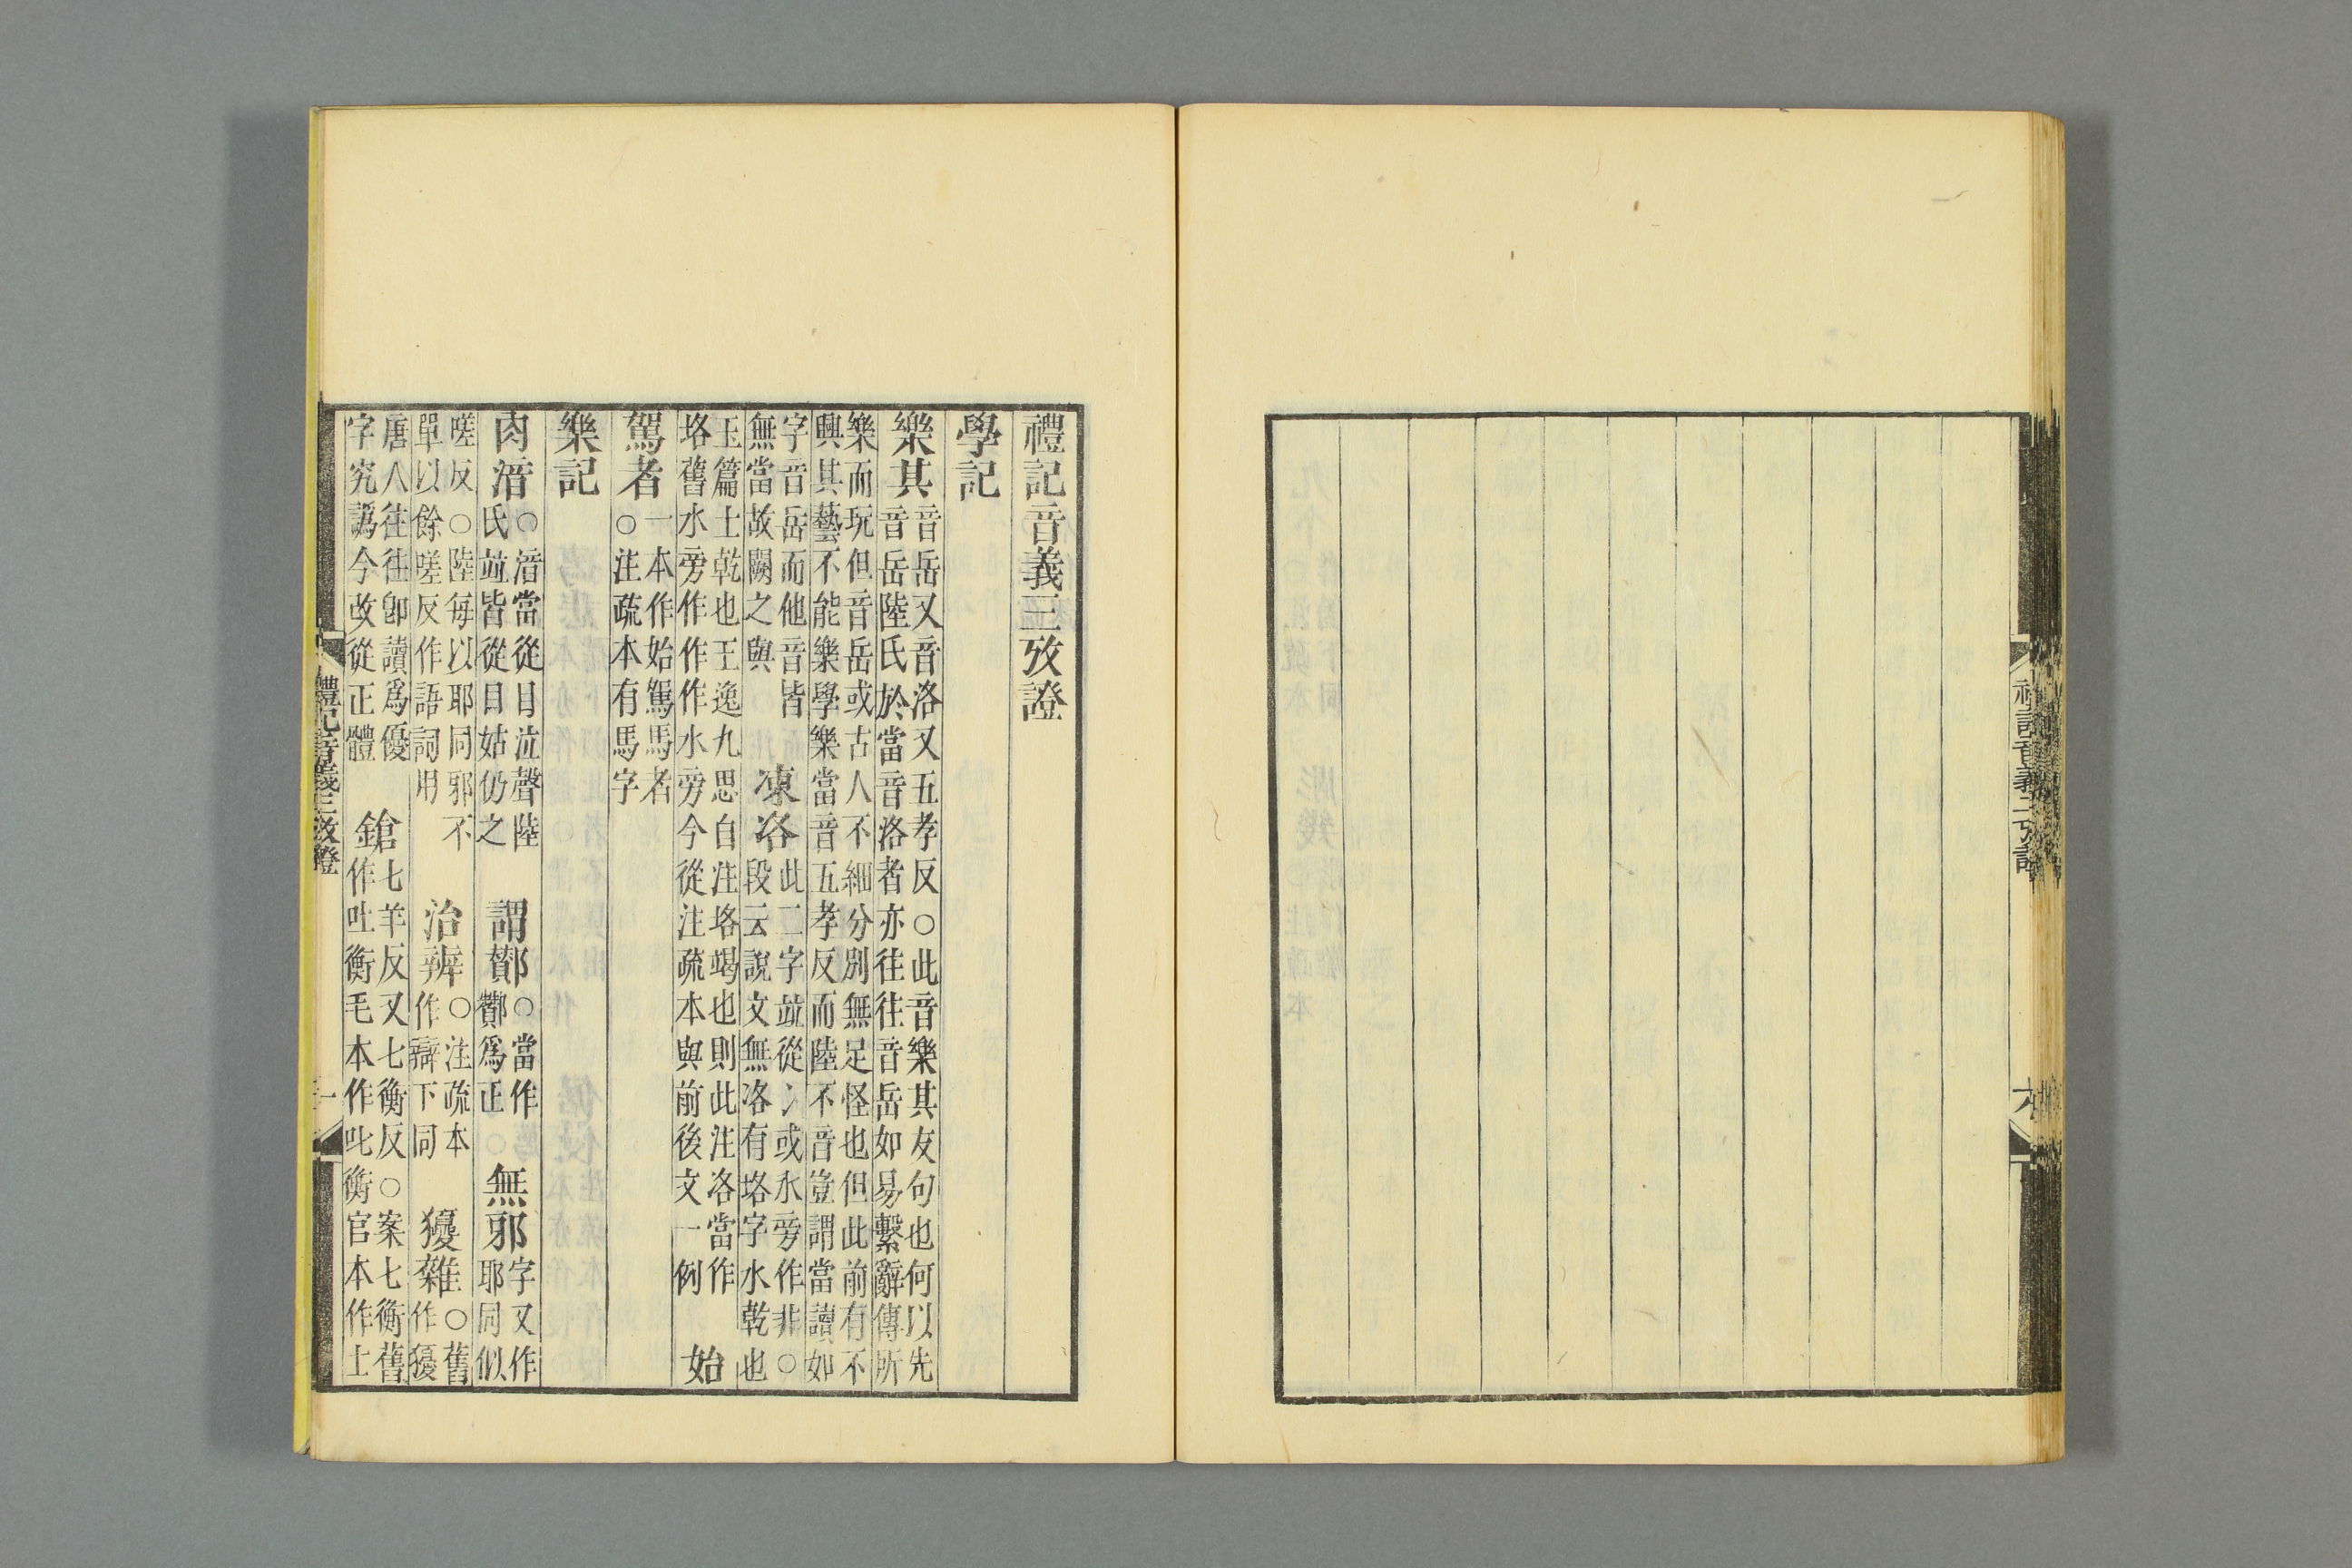 禮記音義三攷證
學記
樂其音岳又音洛又五孝反○此音樂其友句也何以先
音岳陸氏於當音洛者亦往往音岳如易繫辭傳所
樂而玩但音岳或古人不細分別無足怪也但此前有不
興其藝不能樂學樂當音五孝反而陸不音豈謂當讀如
字音岳而他音皆
無當故闕之與
凍洛此二字竝從冫或氷旁作非○
段云說文無洛有垎字水乾也
玉篇土乾也王逸九思白注垎竭也則此注洛當作
垎舊水旁作作作水旁今從注疏本與前後文一例
始
駕者一本作始駕馬者
○注疏本有馬字
樂記
肉湆○湆當從目泣聲陸
氏竝皆從日姑仍之
謂酇○當作
酇爲正
無邪字又作
耶同似
嗟反○陸每以耶同邪不
單以餘嗟反作語詞用
治辨○注疏本
作辯下同
獶雜○舊
作獶
唐人往往卽讀爲優
字究譌今改從正體
鎗七羊反又七衡反○案七衡舊
作吐衡毛本作叱衡官本作土
禮記音義三攷證
一
禮記音義二攷證